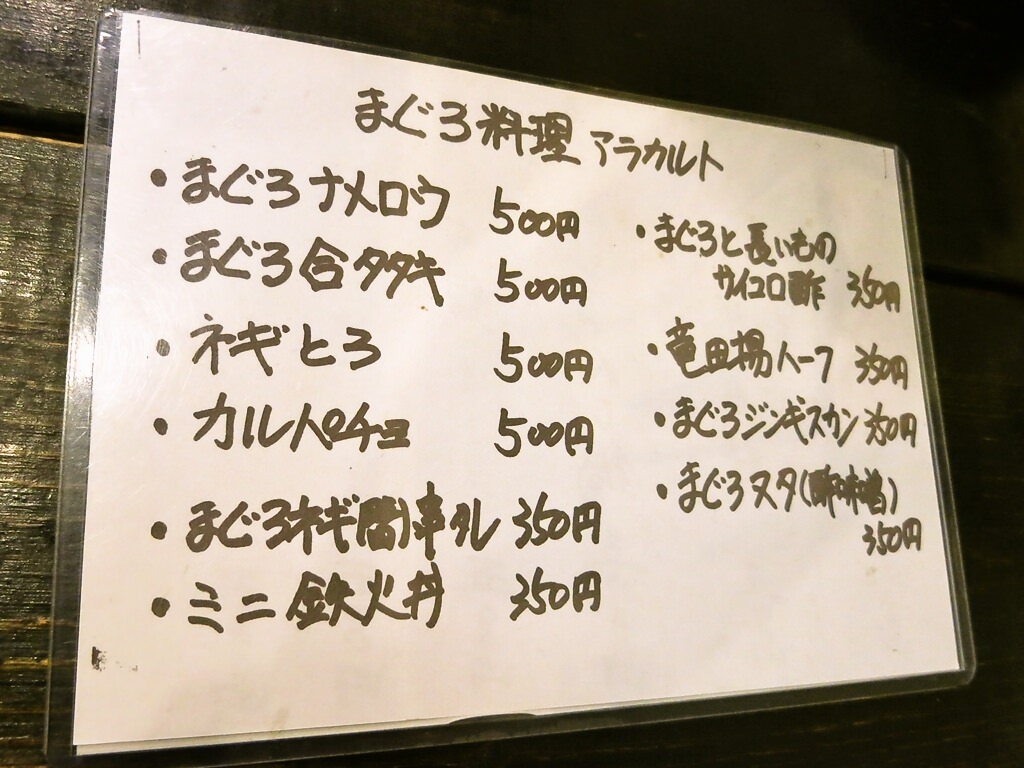 まぐろ料理 アラカルト
・まぐろナメロウ 500円
・まぐろ合タタキ 500円
・ネギとろ 500円
・カルパチョ 500円
・まぐろネギ間串タレ 350円
・ミニ鉄火丼 350円
・まぐろと長いもの
サイコロ酢 350円
・竜田揚ハーフ 350円
・まぐろジンギスカン 350円
・まぐろヌタ(酢味噌)
350円